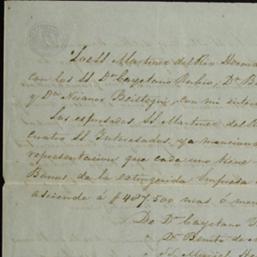 Los SS. Martinez del Rio Herma
con los SS. Dn. Cayetano Rubio, Dn. B
y Dn. Nicanor Beistegui, con mi inter
Los espresados SS. Martinez del R
cuatro SS. Interesados, ya menciona
representacion que cada uno tiene
Bonos de la extinguida Empresa
asciende á $487,500 mas ó men
De Dn. Cayetano
Dn. Benito de